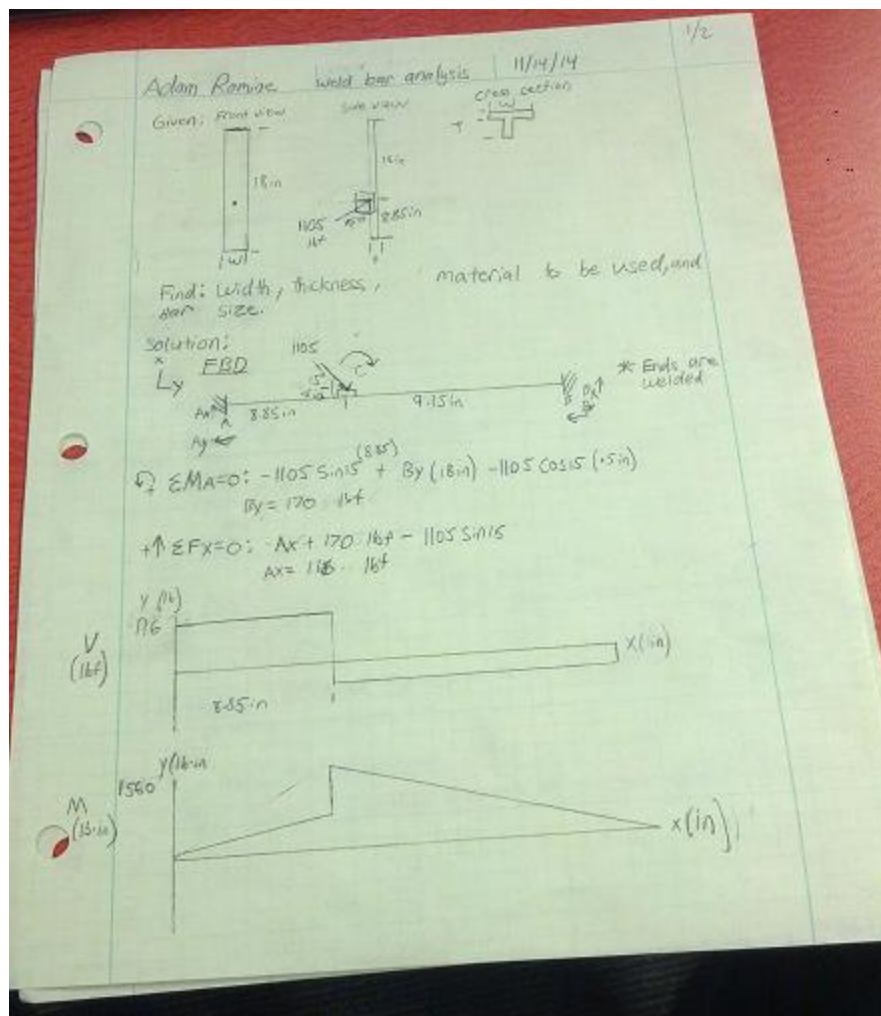 1/2
Adam weld bar analysis 11/14/14
Given: Front view Side view cross section
w
18in
1105
lbf
8.85in
w
Find: Width, thickness, material to be used, and
Bar size.
Solution:
x
y FBD
1105
* Ends are
welded
Ax
A
8.85in
9.15in
Ay
ΣMA=0: -1105 Sin15 (8.85) + By (18in) -1105 Cos15 (.5in)
By = 170 lbf
+↑ ΣFx=0: Ax + 170 lbf - 1105 Sin15
Ax= lbf
V
(lbf)
X(in)
8.85in
1560
M
(lb·in)
x(in)